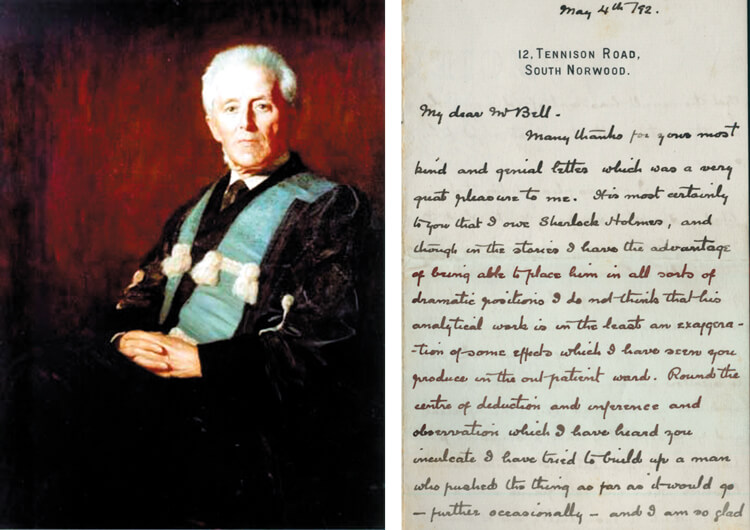 May 4th /92.
12, TENNISON ROAD,
SOUTH NORWOOD.
My dear Mr Bell -
Many thanks for your most
kind and genial letter which was a very
great pleasure to me. It is most certainly
to you that I owe Sherlock Holmes, and
though in the stories I have the advantage
of being able to place him in all sorts of
dramatic positions I do not think that his
analytical work is in the least an exaggera-
-tion of some effects which I have seen you
produce in the out-patient ward. Round the
centre of deduction and inference and
observation which I have heard you
inculcate I have tried to build up a man
who pushed the thing as far as it would go
- further occasionally - and I am so glad